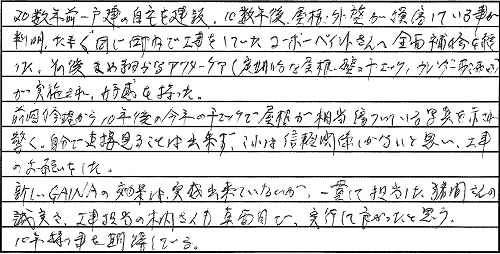 20数年前一戸建の自宅を建設。10数年後、屋根・外壁が損傷している事が
判明、たまたま同じ町内で工事をしていたユーホーペイントさんへ全面補修を
した。その後まめ細かなアフターケア(定期的な屋根・壁のチェック、カレンダー
が実施され、好感を持った。
前回修理から10年後の今年のチェックで屋根が相当傷ついている写真を
驚く。自分で直接見ることは出来ず、これは信頼関係しかないと思い、工事
のお願いをした。
新しいGAINAの効果は、実感出来ていないが、一貫して担当した
誠実さ、工事担当の木内さんも真面目で、実行して良かったと思う。
10年持つ事を期待している。